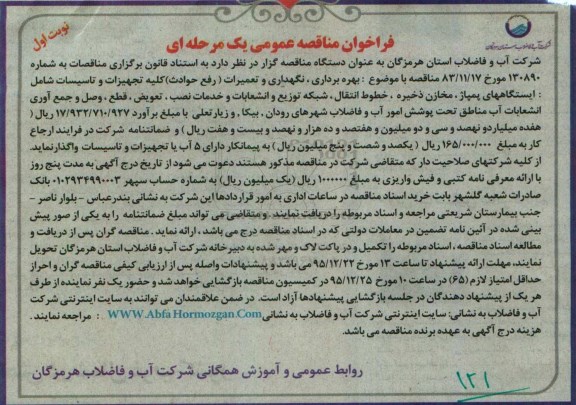 نوبت اول
شرکت آب و فاضلاب استان هرمزگان
فراخوان مناقصه عمومی یک مرحله ای
شرکت آب و فاضلاب استان هرمزگان به عنوان دستگاه مناقصه گزار در نظر دارد به استناد قانون برگزاری مناقصات به شماره
۱۳۰۸۹۰ مورخ ۸۳/۱۱/۱۷ مناقصه با موضوع : بهره برداری ، نگهداری و تعمیرات ( رفع حوادث)کلیه تجهیزات و تاسیسات شامل
: ایستگاههای پمپاژ ، مخازن ذخیره ، خطوط انتقال ، شبکه توزیع و انشعابات و خدمات نصب ، تعویض ، قطع ، وصل و جمع آوری
انشعابات آب مناطق تحت پوشش امور آب و فاضلاب شهرهای رودان ، بیکا ، و زیارتعلی با مبلغ برآورد ۱۷/۹۳۲/۷۱۰/۹۲۷ ریال (
هفده میلیاردو نهصد و سی و دو میلیون و هفتصد و ده هزار و نهصد و بیست و هفت ریال ) و ضمانتنامه شرکت در فرایند ارجاع
کار به مبلغ ۱۶۵/۰۰۰/۰۰۰ ریال ( یکصد و شصت و پنج میلیون ریال) به پیمانکار دارای ۵ آب یا تجهیزات و تاسیسات واگذارنماید.
از کلیه شرکتهای صلاحیت دار که متقاضی شرکت در مناقصه مذکور هستند دعوت می شود از تاریخ درج آگهی به مدت پنج روز
با ارائه معرفی نامه کتبی و فیش واریزی به مبلغ ۱۰۰۰۰۰۰ ریال (یک میلیون ریال) به شماره حساب سپهر ۰۱۰۲۹۳۴۹۹۰۰۰۳ بانک
صادرات شعبه گلشهر بابت خرید اسناد مناقصه در ساعات اداری به امور قراردادها این شرکت به نشانی بندرعباس - بلوار ناصر -
جنب بیمارستان شریعتی مراجعه و اسناد مربوطه را دریافت نمایند . و متقاضی می تواند مبلغ ضمانتنامه را به یکی از صور پیش
بینی شده در آئین نامه تضمین در معاملات دولتی که در اسناد مناقصه درج می باشد ، ارائه نماید . مناقصه گران پس از دریافت و
مطالعه اسناد مناقصه ، اسناد مربوطه را تکمیل و در پاکت لاک و مهر شده به دبیرخانه شرکت آب و فاضلاب استان هرمزگان تحویل
نمایند، مهلت ارائه پیشنهاد تا ساعت ۱۳ مورخ ۹۵/۱۲/۲۲ می باشد و پیشنهادات واصله پس از ارزیابی کیفی مناقصه گران و احراز
حداقل امتیاز لازم (۶۵) در ساعت ۱۰ مورخ ۹۵/۱۲/۲۵ در کمیسیون مناقصه بازگشایی خواهد شد و حضور یک نفر نماینده از طرف
هر یک از پیشنهاد دهندگان در جلسه بازگشایی پیشنهادها آزاد است. در ضمن علاقمندان می توانند به سایت اینترنتی شرکت
آب و فاضلاب به نشانی: سایت اینترنتی شرکت آب و فاضلاب به نشانی WWW.AbfaHormozgan.Com : مراجعه نمایند .
هزینه درج آگهی به عهده برنده مناقصه می باشد.
روابط عمومی و آموزش همگانی شرکت آب و فاضلاب هرمزگان
۱۲۱